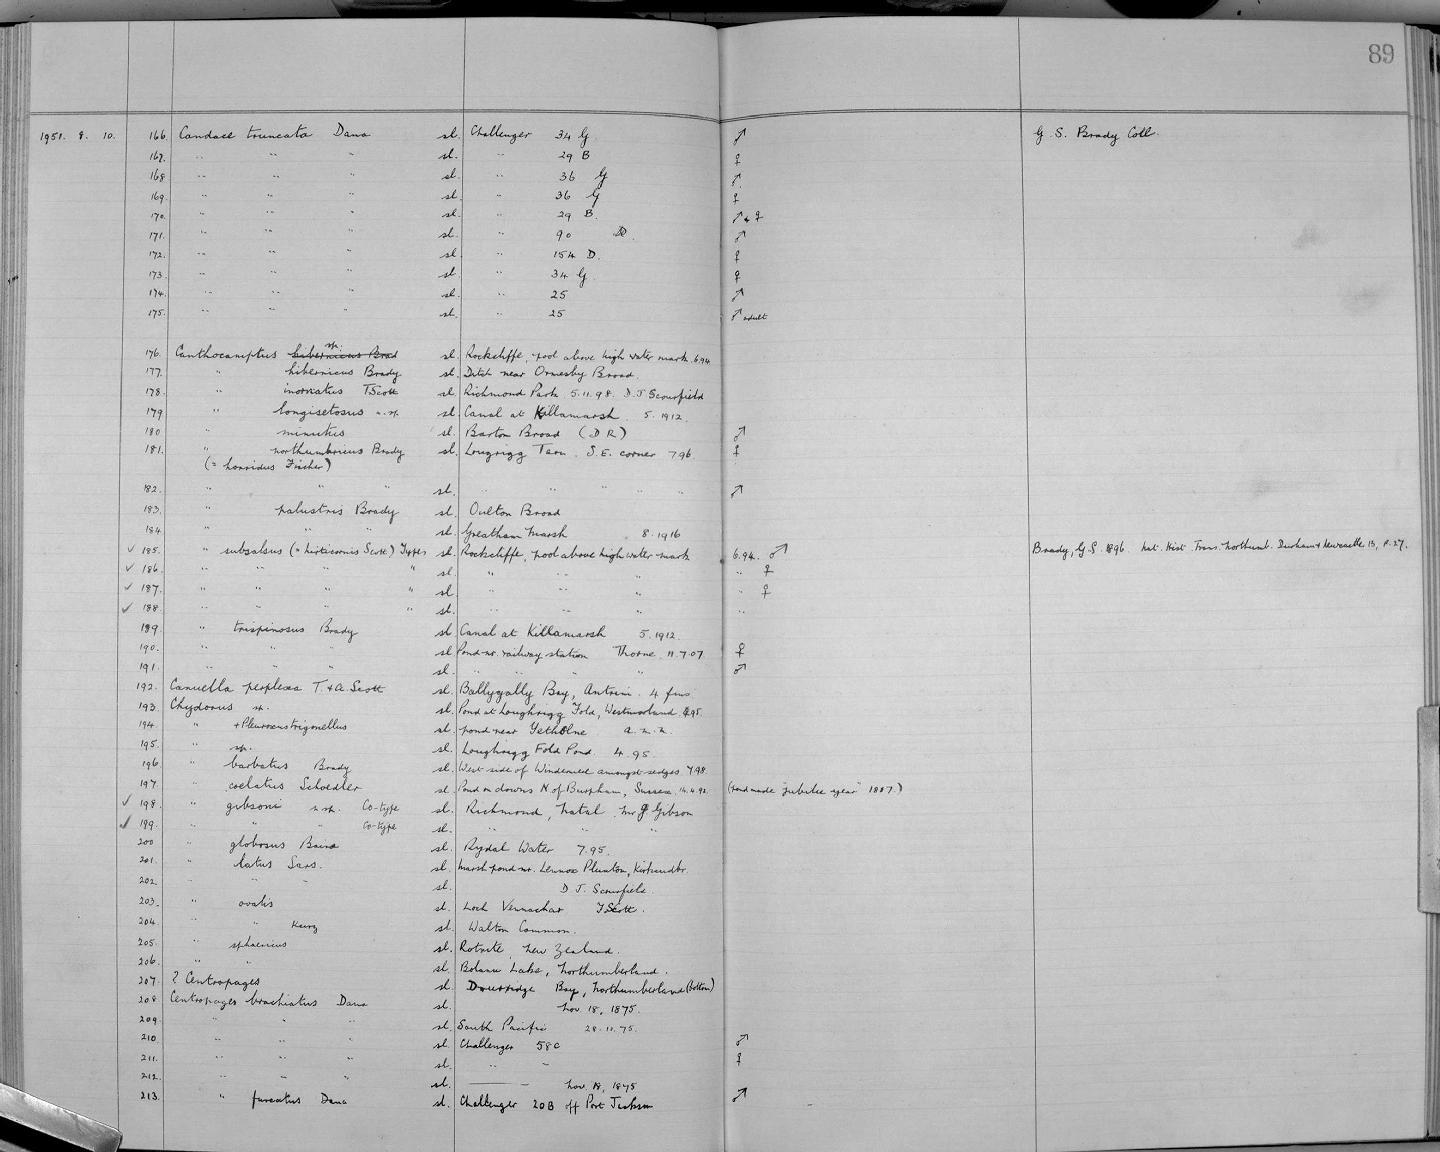 89
1951. 8. 10. 166. Candace truncata Dana sl. Challenger 34 G ♂ G. S. Brady Coll.
167. " " " sl. " 29 B ♀
168 " " " sl. " 36 G ♂
169. " " " sl. " 36 G ♀
170. " " " sl. " 29 B. ♂ + ♀
171. " " " sl. " 90 ♂
172. " " " sl. " 154 D. ♀
173. " " " sl. " 34 G ♀
174. " " " sl. " 25 ♂
175. " " " sl. " 25 ♂ adult
176. Canthocamptus hibernicus Brad sp. sl. Rockcliffe, pool above high water mark. 6.94.
177. " hibernicus Brady sl. Ditch near Ormesby Broad.
178. " inornatus T. Scott sl. Richmond Park 5.11.98. D. J. Scourfield
179 " longisetosus n. sp. sl. Canal at Killamarsh 5. 1912.
180 " minutus sl. Barton Broad (D R) ♂
181. " northumbricus Brady sl. Lougrigg Tarn. S.E. corner 7.96 ♀
(= horridus Fischer)
182. " " " sl. " " " " " ♂
183. " palustris Brady sl. Oulton Broad
184 " " " sl. Greatham Marsh 8. 1916
✓ 185. " subsalsus (= hirticornis Scott) Types sl. Rockcliffe, pool above high water mark 6.94. ♂ Brady, G.S. 1896. Nat. Hist. Trans. Northumb. Durham & Newcastle 13, p. 27.
✓ 186. " " " " sl. " " " " ♀
✓ 187. " " " " sl. " " " " ♀
✓ 188. " " " " sl. " " " "
189. " trispinosus Brady sl. Canal at Killamarsh 5. 1912.
190. " " " sl. Pond nr. railway station Thorne. 11.7.07 ♀
191. " " " sl. " " " ♂
192. Canuella perplexa T. & A. Scott sl. Ballygally Bay, Antrim. 4 fms
193. Chydorus sp. sl. Pond at Loughrigg Fold, Westmorland. 95.
194. " + Pleuroxus trigonellus sl. pond near Yetholme
195. " sp. sl. Loughrigg Fold Pond. 4. 95.
196 " barbatus Brady sl. West side of Windermere amongst sedges 7.98.
197. " coelatus Schoedler sl. Pond on downs N of Burpham, Sussex. 14.4.92. (Pond made "jubilee year" 1887.)
✓ 198. " gibsoni n. sp. Co-type sl. Richmond, Natal. Mr J Gibson
✓ 199. " " " Co-type sl. " " "
200 " globosus Baird sl. Rydal Water 7.95.
201. " latus Sars. sl. Marsh pond nr. Lennox Plunton, Kirkcudbr.
202. " " " sl. D. J. Scourfield.
203. " ovalis sl. Loch Vennachar T Scott.
204. " " Kurz sl. Walton Common.
205. " sphaericus sl. Rotuite, New Zealand.
206. " " sl. Bolam Lake, Northumberland.
207. ? Centropages sl. Druridge Bay, Northumberland (Bottom)
208 Centropages brachiatus Dana sl. Nov. 18, 1875.
209. " " " sl. South Pacific 28. 11. 75.
210. " " " sl. Challenger 58 C ♂
211. " " " sl. " " ♀
212. " " " sl. Nov. 18, 1875
213. " furcatus Dana sl. Challenger 20B off Port Jackson ♂